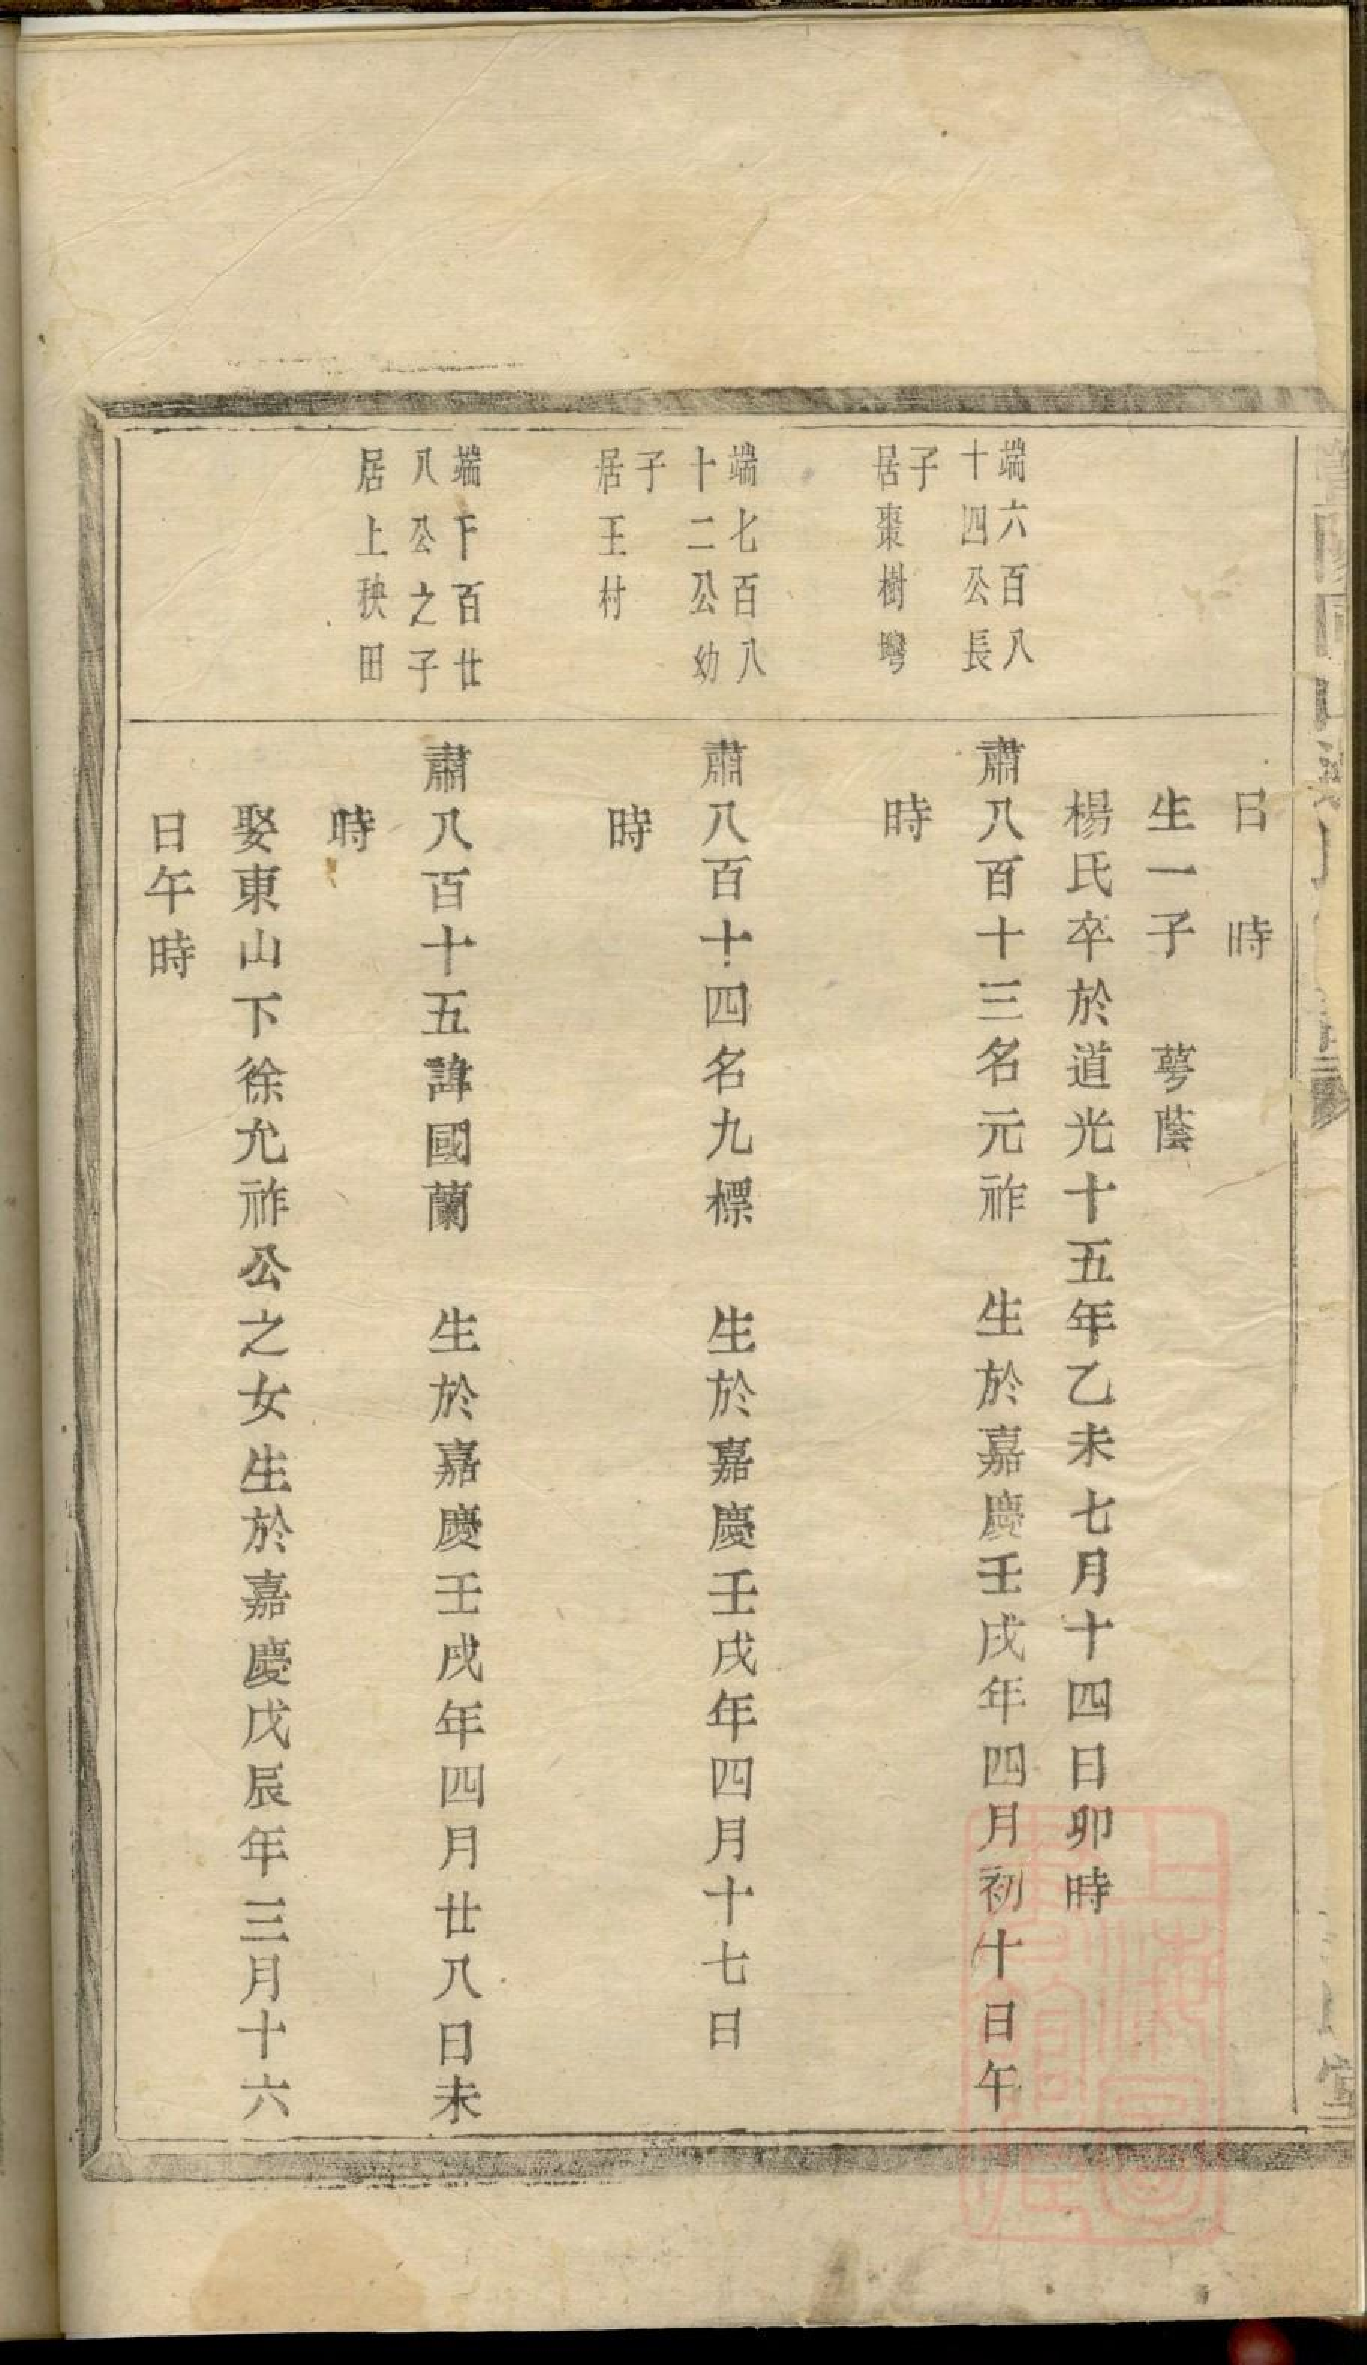 日　時
生一子　萼蔭
楊氏卒於道光十五年乙未七月十四日卯時
端六百八
十四公長
子
居棗樹灣
肅八百十三名元祚　生於嘉慶壬戌年四月初十日午
時
端七百八
十二公幼
子
居王村
肅八百十四名九標　生於嘉慶壬戌年四月十七日
時
端千百廿
八公之子
居上秧田
肅八百十五諱國蘭　生於嘉慶壬戌年四月廿八日未
時
娶東山下徐允祚公之女生於嘉慶戊辰年三月十六
日午時
上海圖
書館藏